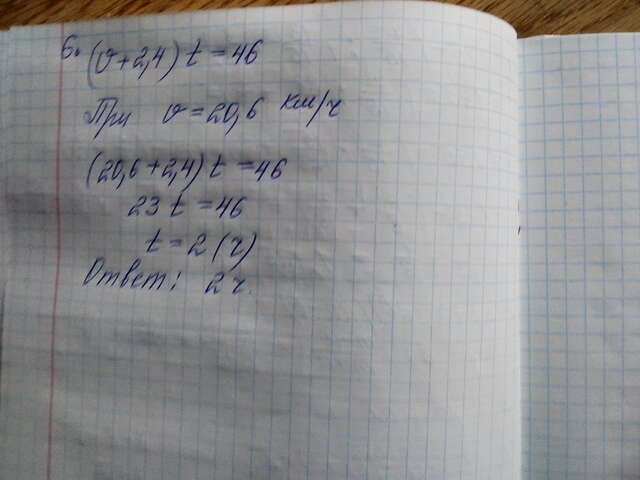 6. (v+2,4) t = 46
При v = 20,6 км/ч
(20,6+2,4) t = 46
23 t = 46
t = 2 (ч)
Ответ: 2 ч.